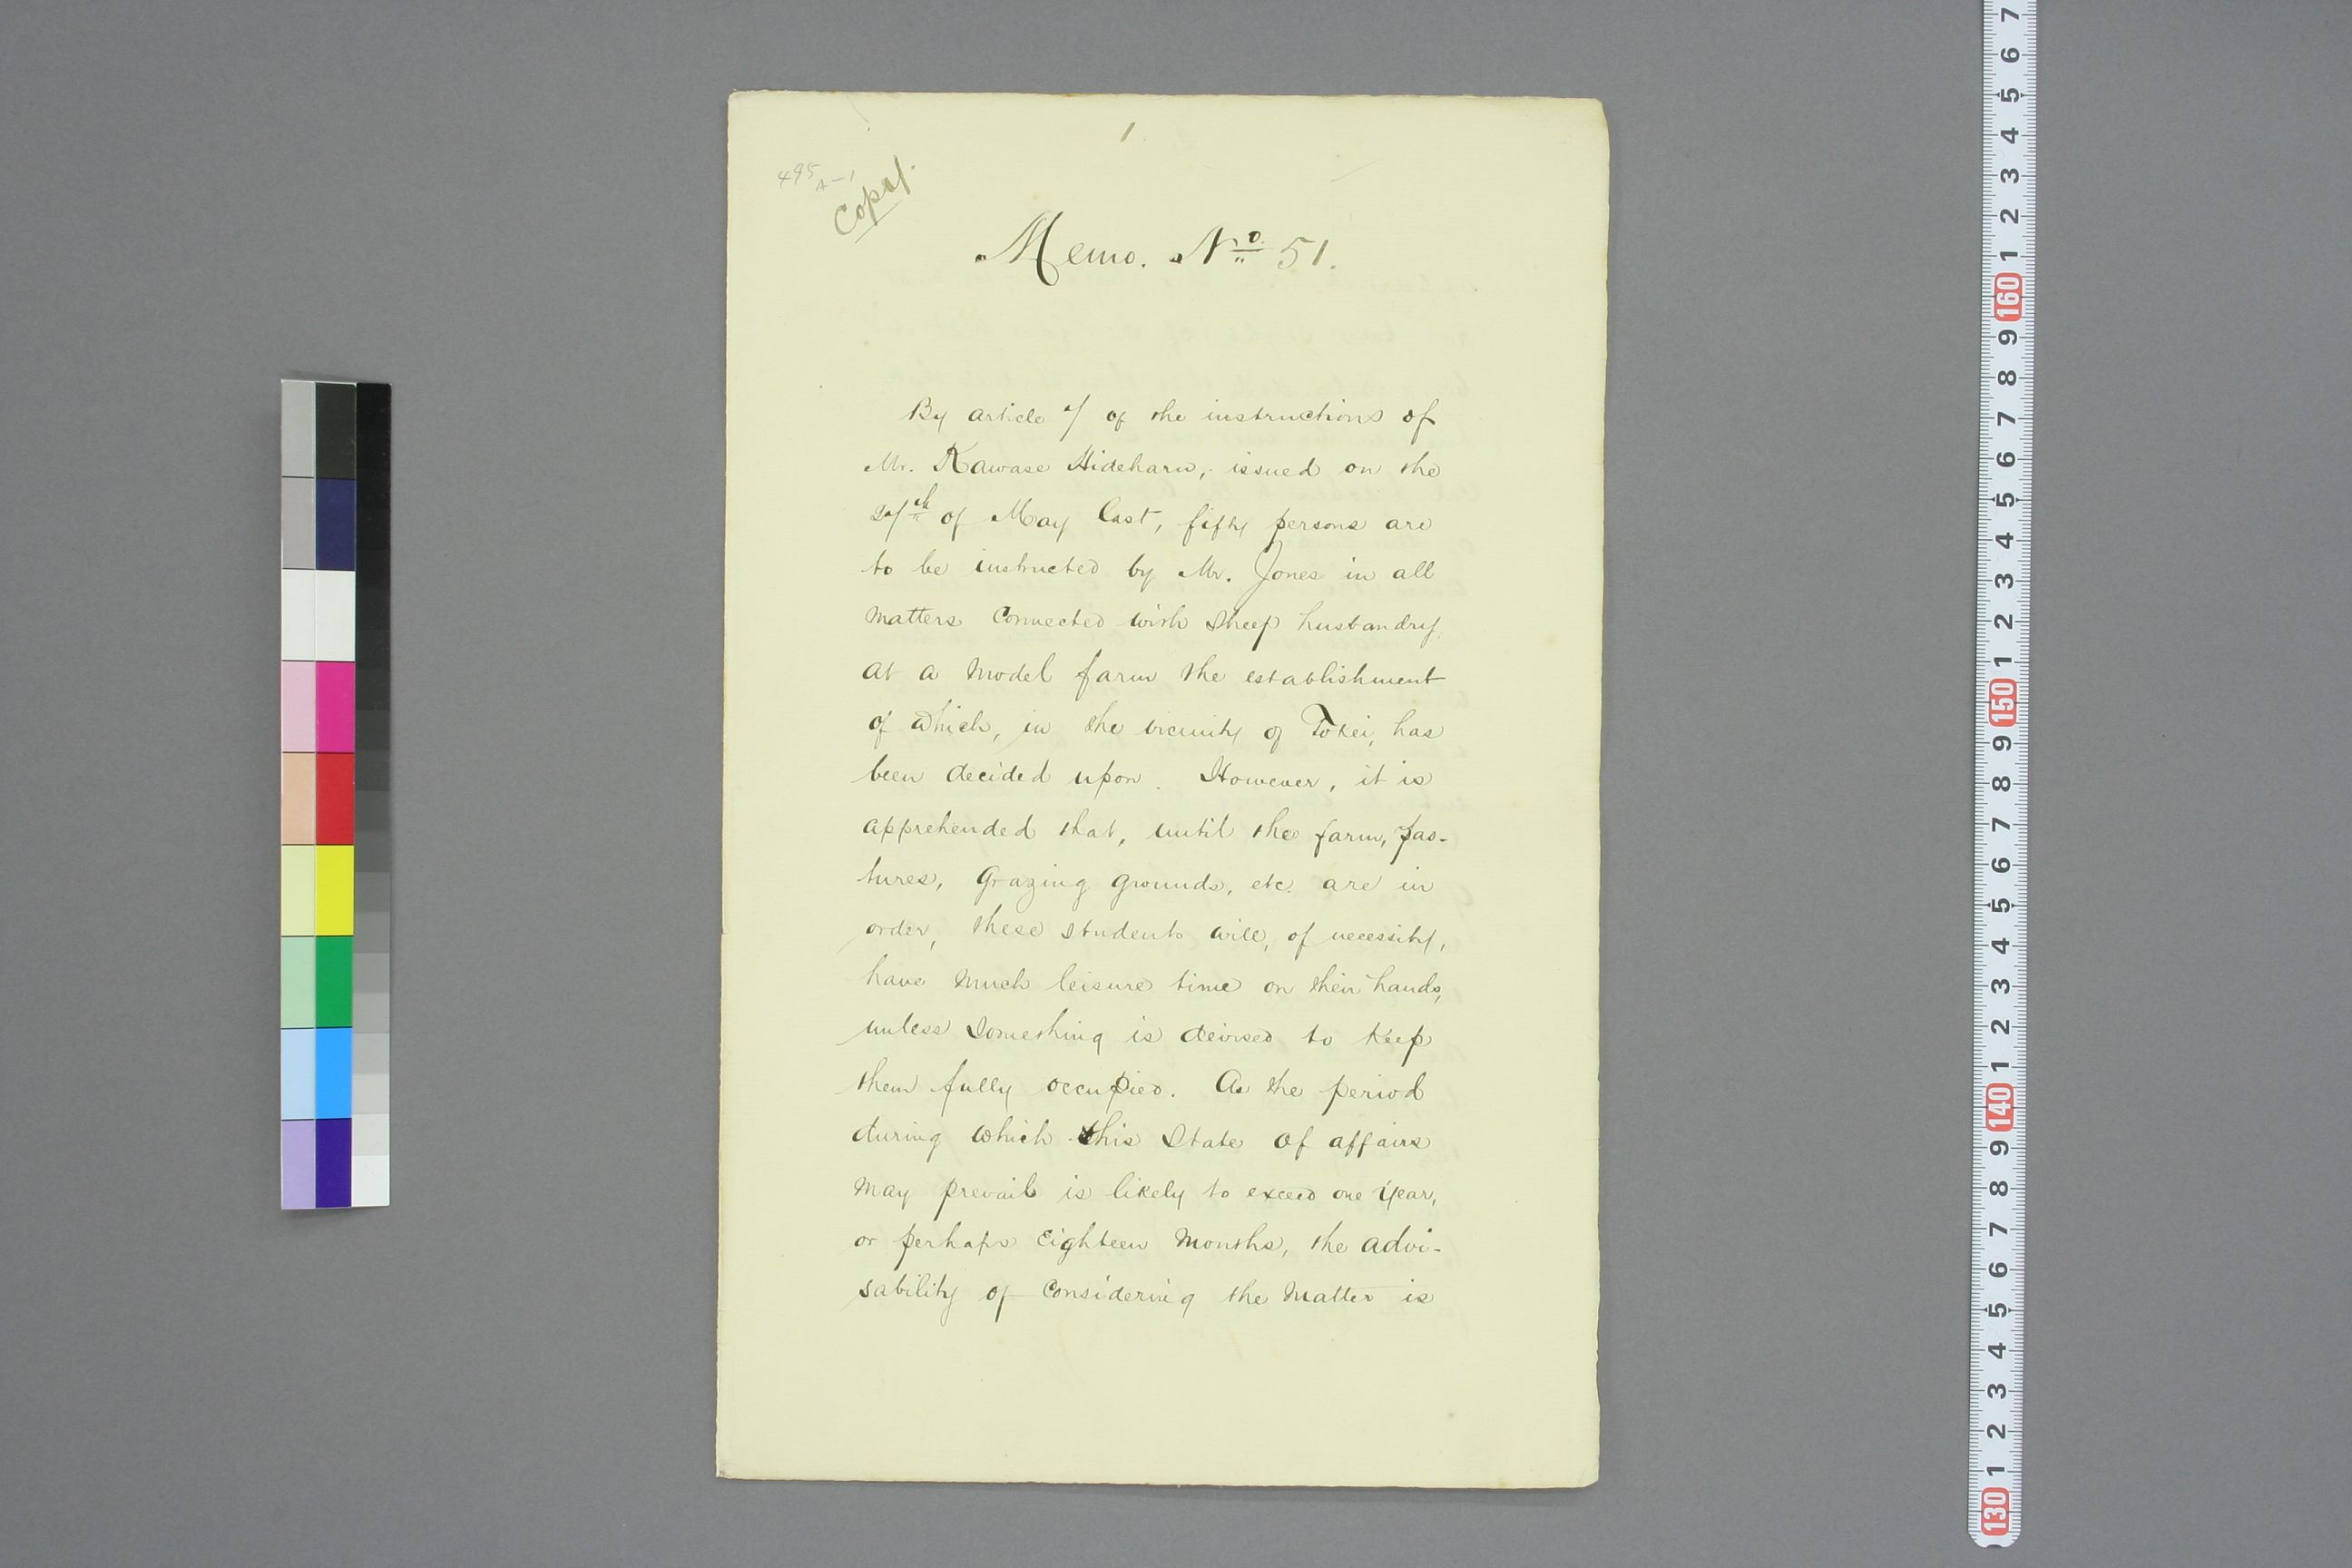 1
495
A-1
Copy.
Memo. No. 51.
By article 7 of the instructions of
Mr. Kawase Hideharu, issued on the
27th of May last, fifty persons are
to be instructed by Mr. Jones in all
matters connected with sheep husbandry
at a model farm the establishment
of which, in the vicinity of Tokei, has
been decided upon. However, it is
apprehended that, until the farm, pas-
tures, grazing grounds, etc. are in
order, these students will, of necessity,
have much leisure time on their hands,
unless something is devised to keep
them fully occupied. As the period
during which this state of affairs
may prevail is likely to exceed one year,
or perhaps eighteen months, the advi-
sability of considering the matter is
7 6 5 4 3 2 1 160 9 8 7 6 5 4 3 2 1 150 9 8 7 6 5 4 3 2 1 140 9 8 7 6 5 4 3 2 1 130